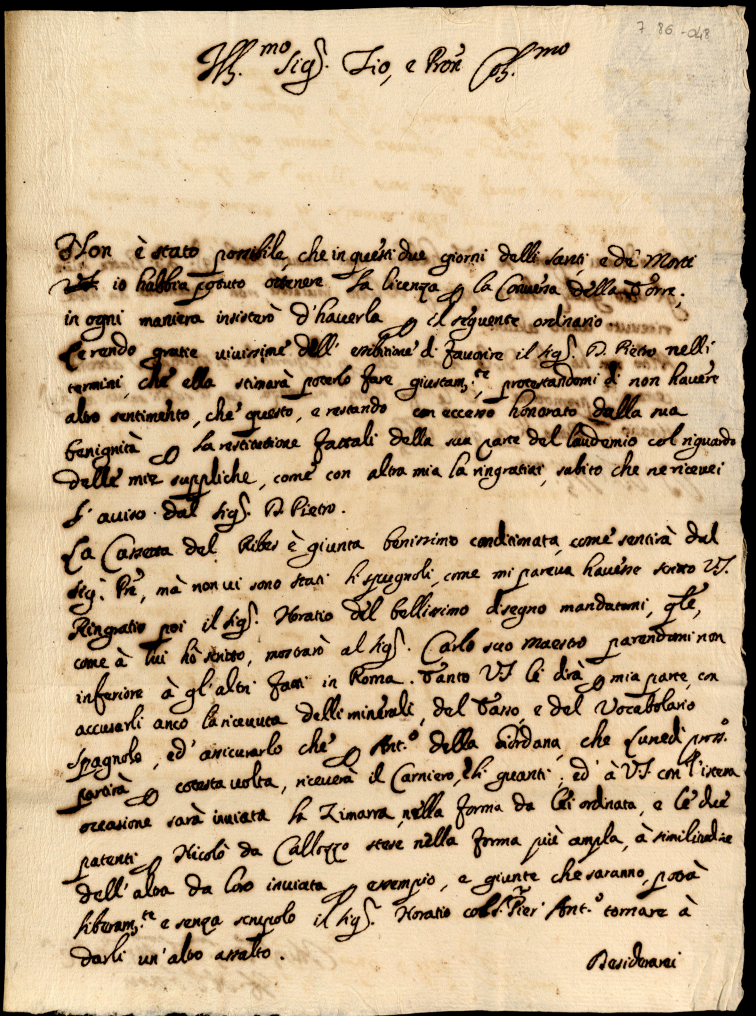 7 86 -048
Ill.mo Sig.r Zio, e Pron Col.mo
Non è stato possibile, che in questi due giorni delli santi, e de' Morti
io habbia potuto ottenere la licenza p la Conversa della Torre;
in ogni maniera insisterò d'haverla p il seguente ordinario.
Le rendo gratie vivissime dell' esibitione di favorire il Sig.r D. Pietro nelli
termini, che ella stimarà poterlo fare giustam.te, protestandomi di non havere
altro sentimento, che questo, e restando con eccesso honorato dalla sua
benignità p la restitutione fattali della sua parte del laudemio col riguardo
delle mie suppliche, come con altra mia la ringratiai, subito che ne ricevei
l'aviso dal Sig.r D. Pietro.
La Cassetta del Ribes è giunta benissimo conditionata, come sentirà dal
Sig.r Pre, mà non vi sono stati li spugnoli, come mi pareva havesse scritto V.S.
Ringratio poi il Sig.r Horatio del bellissimo disegno mandatomi, qle,
come à lui hò scritto, mostrarò al Sig.r Carlo suo Maestro parendomi non
inferiore à gl'altri fatti in Roma. Tanto V.S. le dirà p mia parte, con
accusarli anco la ricevuta delli minerali, del Tasso, e del Vocabolario
spagnolo, ed' assicurarlo che p Ant.o della Giordana, che Lunedì pross.o
partirà p cotesta volta, riceverà il Carniero, e li guanti; ed' à V.S. con l'istessa
occasione sarà inviata la Zimarra, nella forma da lei ordinata, e le due
patenti p Nicolò da Callozzo stese nella forma più ampla, à similitudine
dell'altra da loro inviata p essempio, e giunte che saranno, potrà
liberam.te e senza scrupolo il Sig.r Horatio col S.r Pier' Ant.o tornare à
darli un'altro assalto.
Desiderarei